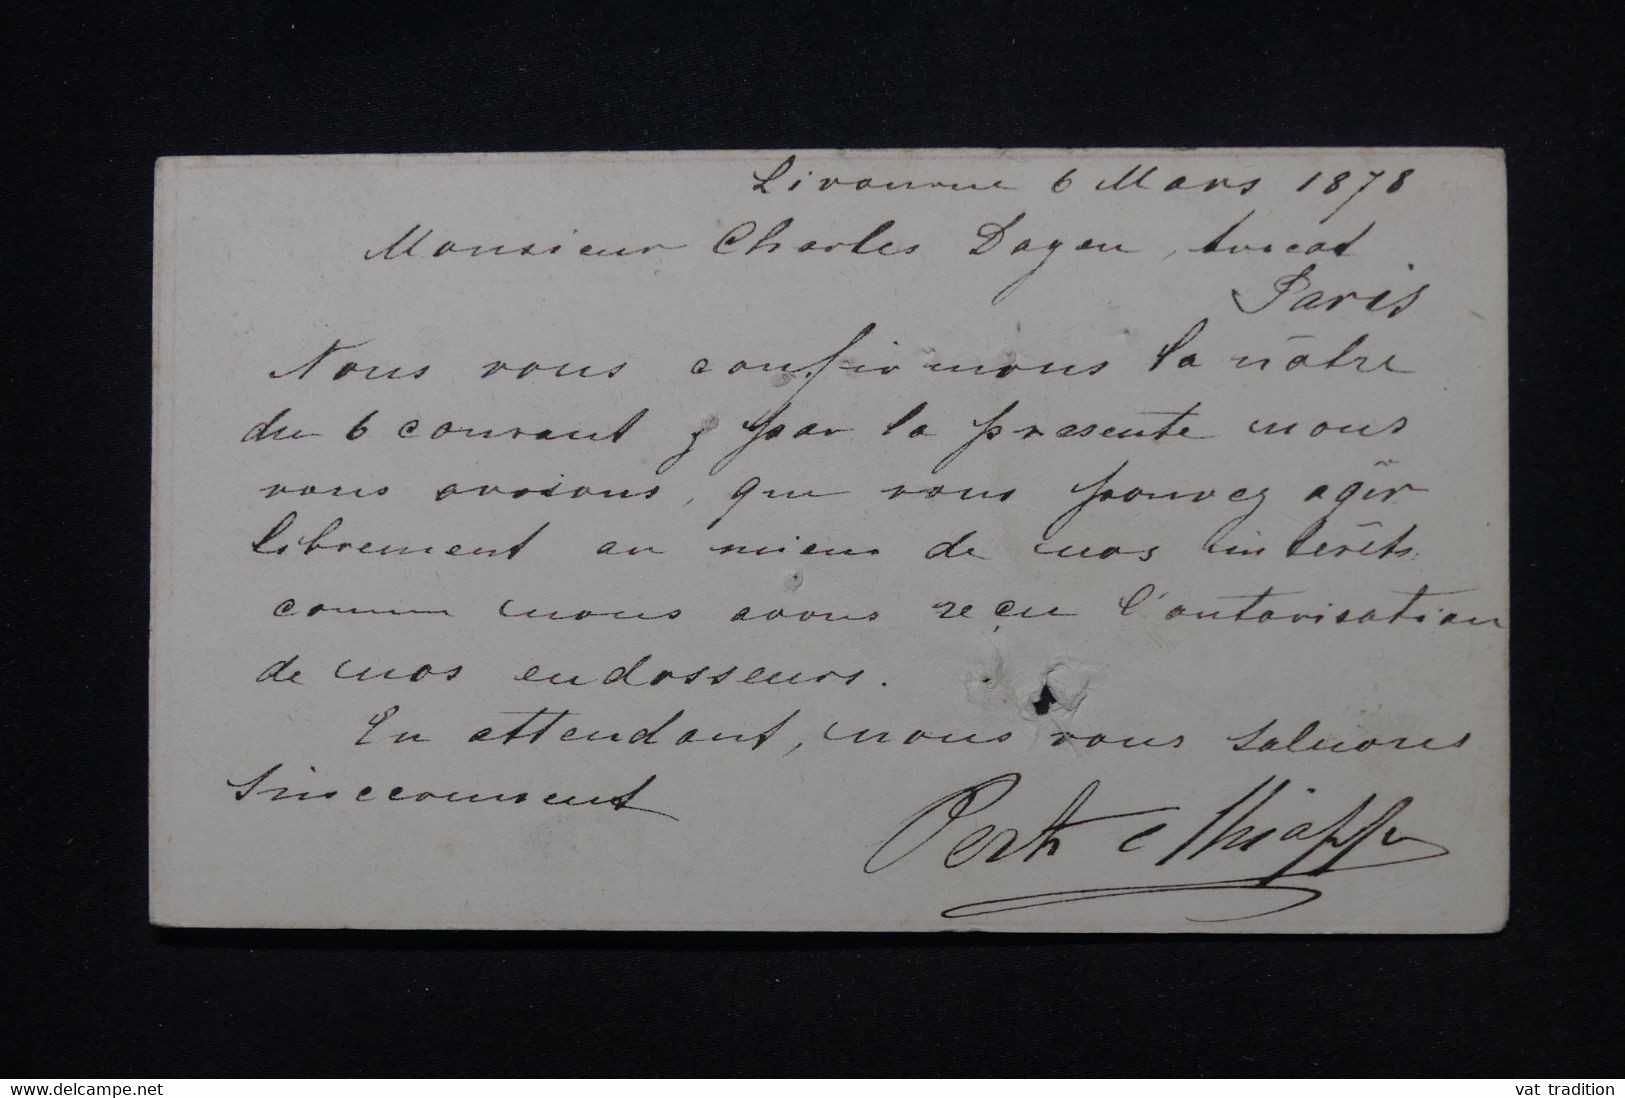 Livourne 6 Mars 1878
Monsieur Charles Dayen, avocat
Paris
Nous vous confirmons la nôtre
du 6 courant & par la presente nous
vous avisons, que vous pouvez agir
librement au mieux de nos intérêts
comme nous avons reçu l'autorisation
de nos endosseurs.
En attendant, nous vous saluons
sincerement
www.delcampe.net
vat tradition